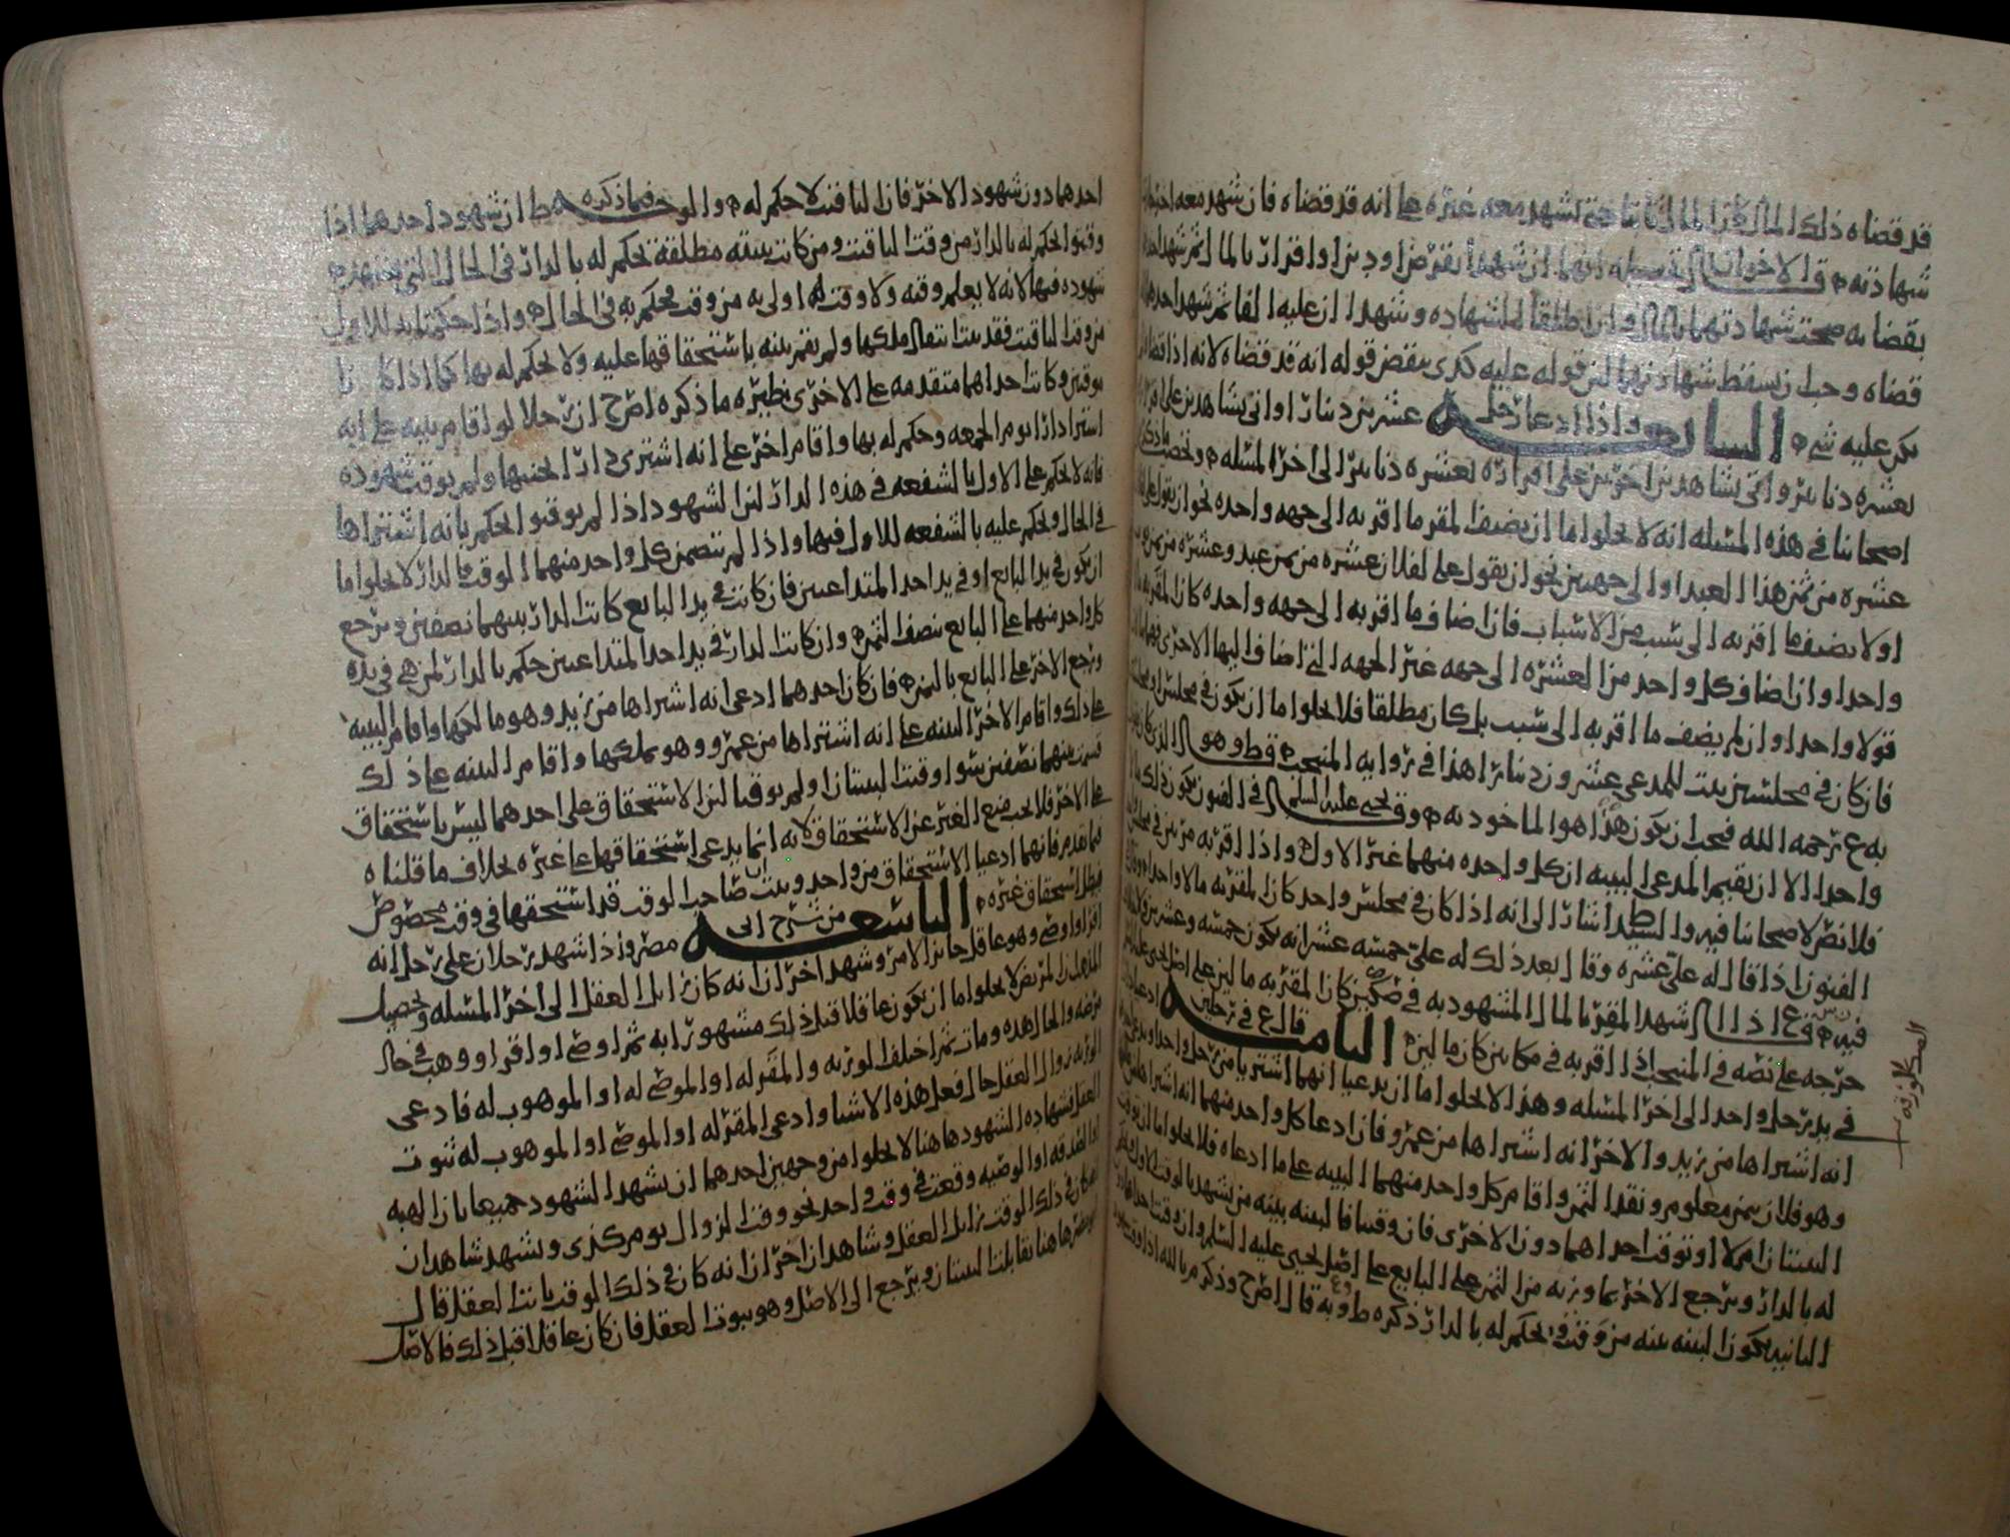 قد قضاه ذلك المال فان المال ثابتا حتى يشهد معه غيره على انه قد قضاه فان شهد معه اخر
شهادته قال الاخوان انهما ان شهدا بقرض او دين او اقرار بالمال ثم شهد احدهما
بقضائه صحت شهادتهما بالمال وان اطلقا الشهاده وشهدا ان عليه الفا ثم شهد احدهما
قضاه وجب ان يسقط شهادتهما لان قوله عليه كذى ينقض قوله انه قد قضاه لانه اذا قضاه
يكن عليه شي السابعه واذا ادعا رجل عشرين دينارا واتى بشاهدين على اقراره
بعشره دنانير واتى بشاهدين اخرين على اقراره بعشره دنانير الى اخر المسله وتحصيل ما ذكره
اصحابنا في هذه المسله انه لا يخلوا اما ان يضيف المقر ما اقر به الى جهه واحده نحو ان يقول علي
عشره من ثمن هذا العبد او الى جهتين نحو ان يقول علي لفلان عشره من ثمن عبد وعشره من ثمن
او لا يضيف ما اقر به الى سبب من الاسباب فان اضاف ما اقر به الى جهه واحده كان المقر به
واحدا وان اضاف كل واحد من العشره الى جهه غير الجهه التي اضاف اليها الاخرى
قولا واحدا وان لم يضف ما اقر به الى سبب بل كان مطلقا فلا يخلوا اما ان يكون في مجلس او مجلسين
فان كان في مجلسين يثبت للمدعي عشرون دينارا هذا في رواية المنتخب وط وهو الذي كان يقول
به ع رحمه الله فيجب ان يكون هذا هو الماخوذ به وق يحيى عليه السلم في الفنون يكون ذلك
واحدا الا ان يقيم المدعي البينه ان كل واحده منهما غير الاول واذا اقر به مرتين في مجلس
فلا نص لاصحابنا فيه والسيد ط اشار الى انه اذا كان في مجلس واحد كان المقر به مالا واحدا وقال في
الفنون اذا قال له علي عشره وقال بعد ذلك له علي خمسه عشر انه يكون خمسه وعشرين
فيه وق ع اذا اشهد المقر بالمال المشهود به في صكين كان المقر به مالين على اصل يحيى
خرجه على نصه في المنتخب اذا اقر به في مكانين كان مالين الثامنه قال ع في رجلين ادعيا دارا
في يد رجل واحد الى اخر المسله وهذا لا يخلوا اما ان يدعيا انهما اشتريا من رجل واحد
انه اشتراها من زيد والاخر انه اشتراها من عمرو فان ادعا كل واحد منهما انه اشتراها
وهو فلان بثمن معلوم ونقد الثمن واقام كل واحد منهما البينه على ما ادعاه فلا يخلوا اما ان توقت
البينتان ام لا او توقت احداهما دون الاخرى فان وقتتا فالبينه بينه من يشهد بالوقت الاول
له بالدار ويرجع الاخر بما وزنه من الثمن على البايع على اصل يحيى عليه السلم وان وقتت احداهما
الثانيه تكون البينه بينه من وقت ويحكم له بالدار ذكره ط وبه قال اص ح وذكر م بالله
احدهما دون شهود الاخر فان التاقيت لا حكم له والوجه فيما ذكره ط ان شهود احدهما اذا
وقتوا الحكم له بالدار من وقت التاقيت ومن كانت بينته مطلقة يحكم له بالدار في الحال
شهوده فيها لانه لا يعلم وقته ولا وقت له اولى به من وقت يحكم به في الحال واذا حكمنا به للاول
من وقت التاقيت فقد ثبت انتقال ملكها ولم تقم بينه باستحقاقها عليه ولا يحكم له بها كما اذا كانا
موقتين وكانت احداهما متقدمه على الاخرى نظيره ما ذكره اص ح ان رجلا لو اقام بينه على انه
اشترا دارا يوم الجمعه وحكم له بها واقام اخر على انه اشترى دارا الى جنبها ولم يوقت شهوده
فانه لا يحكم على الاول بالشفعه في هذه الدار لان الشهود اذا لم يوقتوا الحكم بانه اشتراها
في الحال ويحكم عليه بالشفعه للاول فيها واذا لم تتضمن كل واحد منهما الوقت فالدار لا يخلوا اما
ان يكون في يد البايع او في يد احد المتداعيين فان كانت في يد البايع كانت الدار بينهما نصفين ويرجع
كل واحد منهما على البايع بنصف الثمن وان كانت الدار في يد احد المتداعيين حكم بالدار لمن هي في يده
ويرجع الاخر على البايع بالثمن فان كان احدهما ادعى انه اشتراها من زيد وهو مالكها واقام البينه
على ذلك واقام الاخر البينه على انه اشتراها من عمرو وهو يملكها واقام البينه على ذلك
قسمت بينهما نصفين سوا وقتت البينتان او لم يوقتا لان الاستحقاق على احدهما ليس باستحقاق
على الاخر فلا يجب منع الغير عن الاستحقاق لانه انما يدعي استحقاقها على غيره بخلاف ما قلناه
فيما تقدم فانهما ادعيا الاستحقاق من واحد ويثبت ان صاحب الوقت قد استحقها في وقت مخصوص
فبطل استحقاق غيره التاسعه من شرح ابي مضر واذا شهد رجلان على رجل انه
اقر او اوصى وهو عاقل جايز الامر وشهد اخران انه كان زايل العقل الى اخر المسله وتحصيل
المذهب ان المريض لا يخلوا اما ان يكون عاقلا قبل ذلك مشهورا به ثم اوصى او اقر او وهب في حال
مرضه والحال هذه ومات ثم اختلف الورثه والمقر له او الموصى له او الموهوب له فادعى
الورثه زوال العقل حال فعل هذه الاشيا وادعى المقر له او الموصى او الموهوب له ثبوت
العقل فشهاده الشهود هاهنا لا يخلوا من وجهين احدهما ان يشهد الشهود جميعا بان الهبه
او الصدقه او الوصيه وقعت في وقت واحد نحو وقت الزوال يوم كذى ويشهد شاهدان
انه كان في ذلك الوقت زايل العقل وشاهدان اخران انه كان في ذلك الوقت ثابت العقل قال
هاهنا تقابلت البينتان ويرجع الى الاصل وهو ثبوت العقل فان كان عاقلا قبل ذلك فالاصل